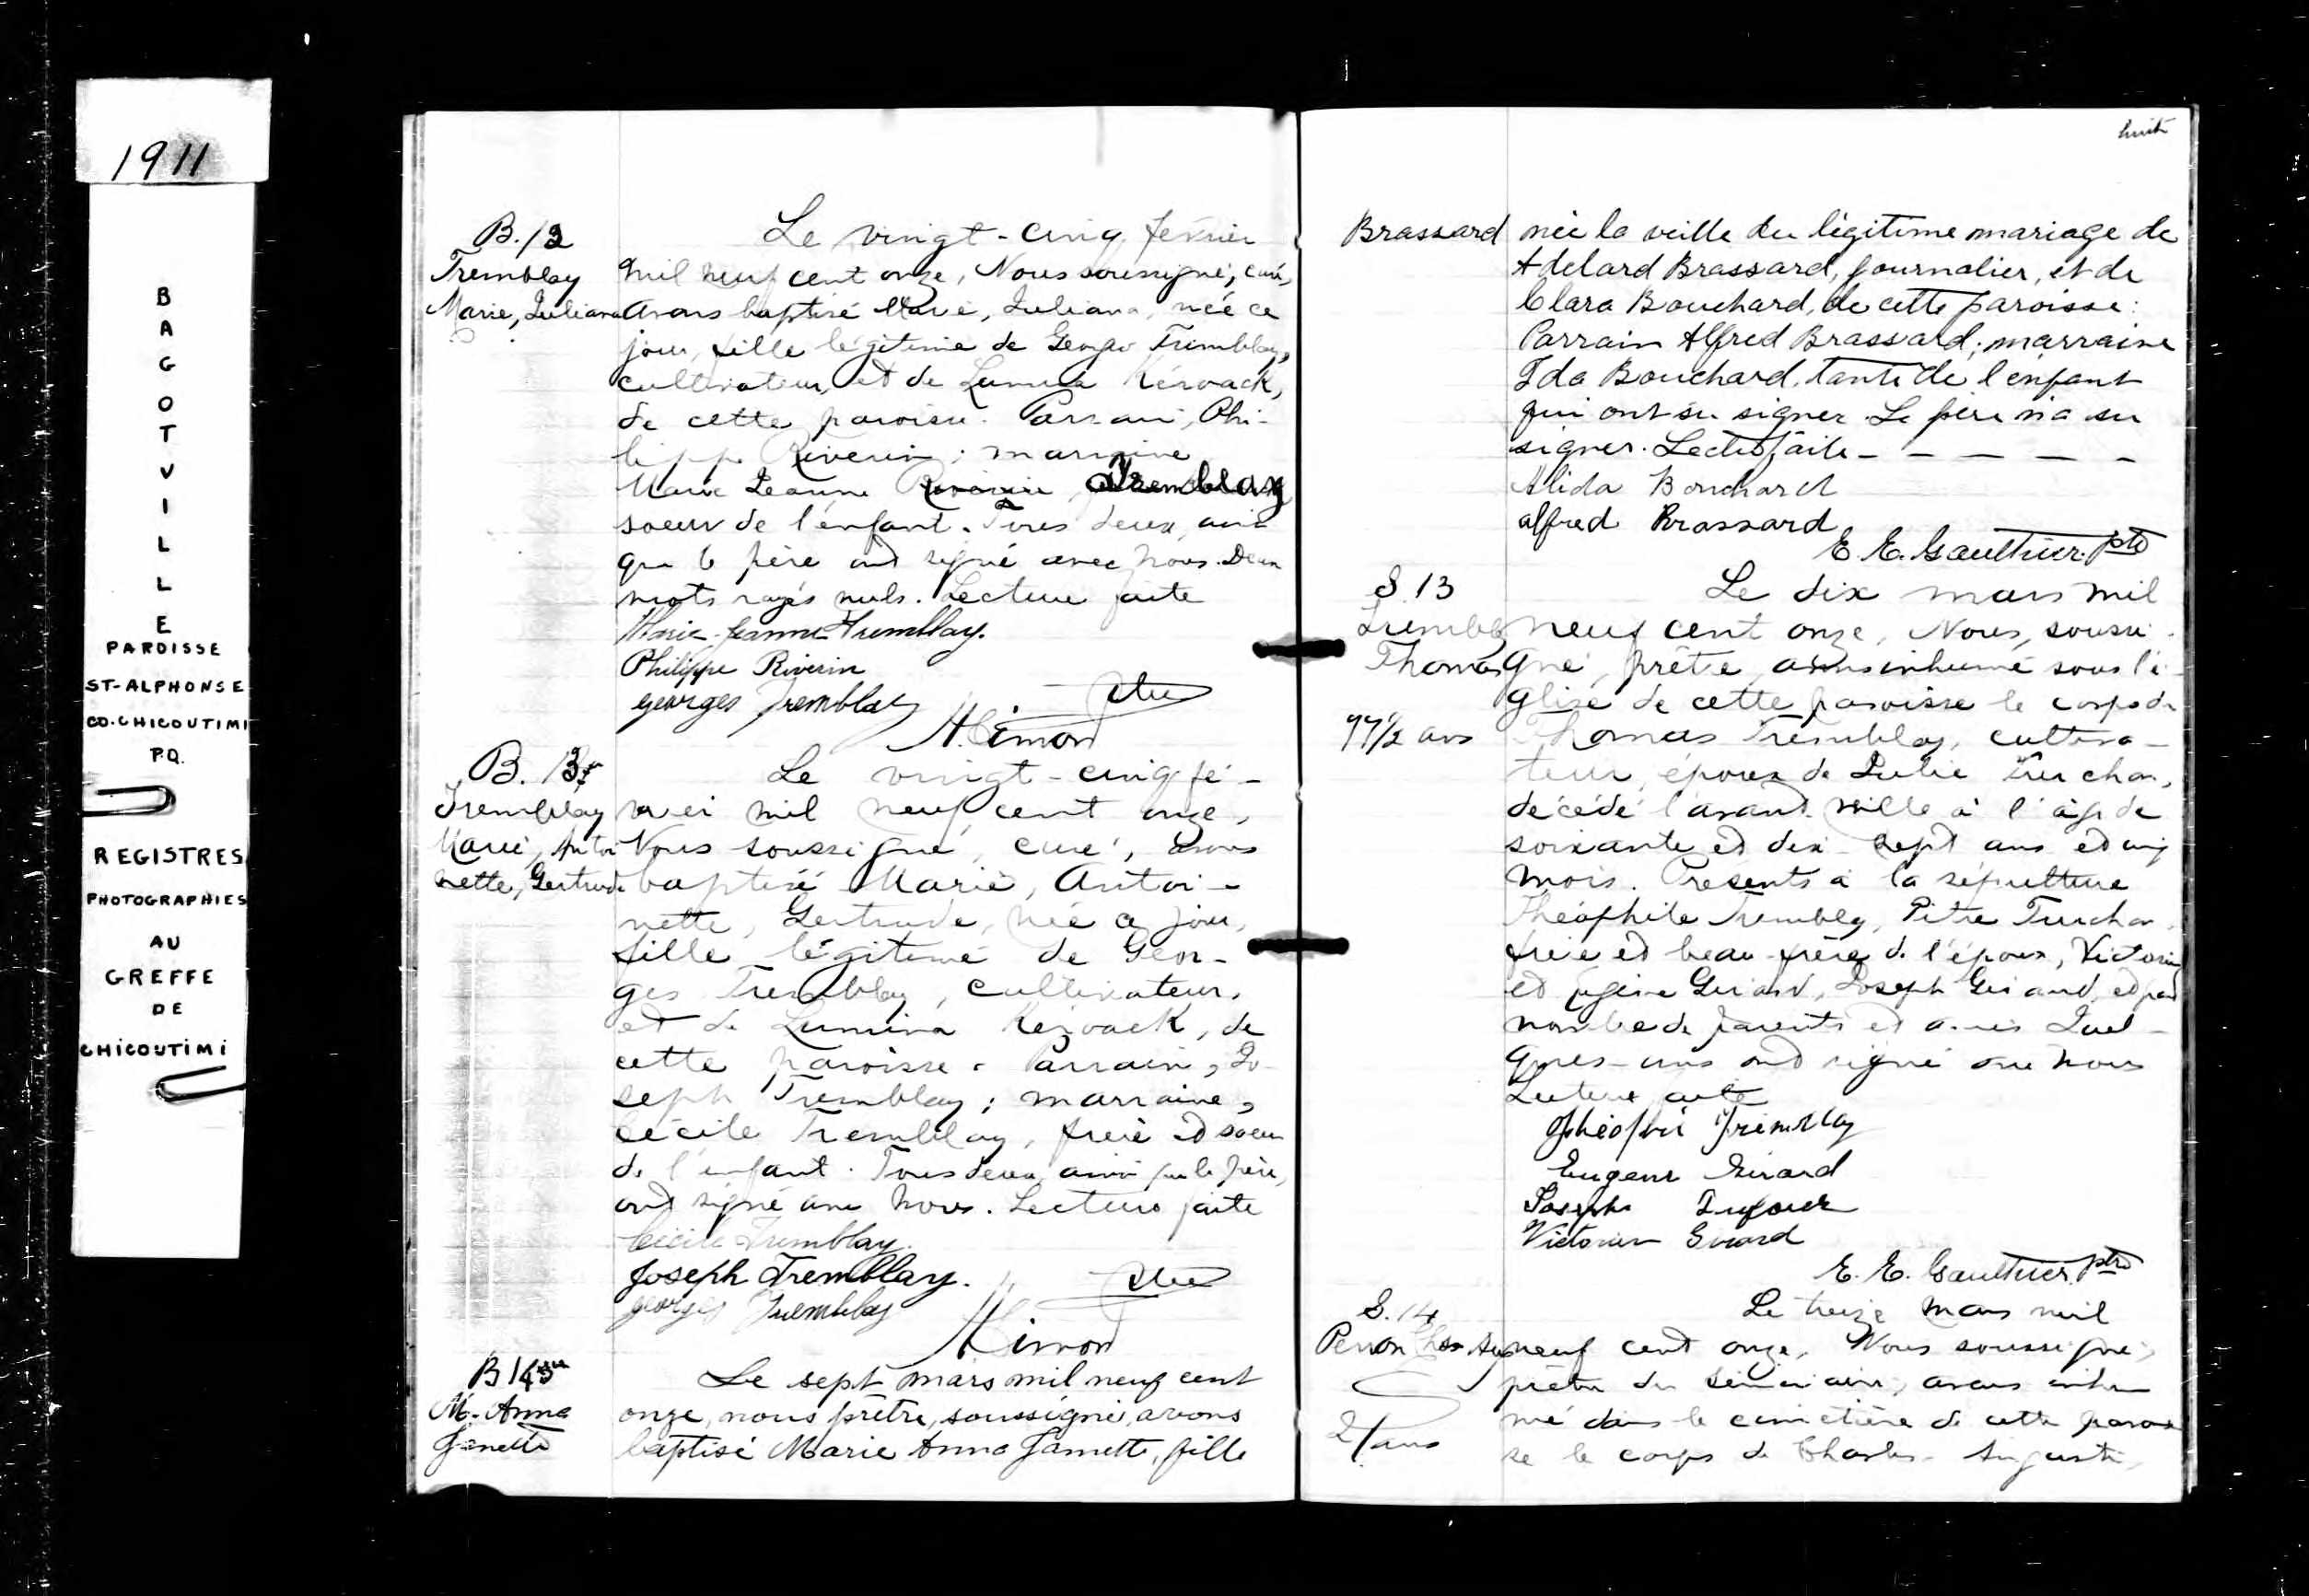 1911
BAGOTVILLE
PAROISSE
ST-ALPHONSE
CO. CHICOUTIMI
P.Q.
REGISTRES
PHOTOGRAPHIES
AU
GREFFE
DE
CHICOUTIMI
B. 12
Tremblay
Marie, Juliana
Le vingt-cinq février
mil neuf cent onze, Nous soussigné, curé,
avons baptisé Marie, Juliana, née ce
jour, fille légitime de Georges Tremblay,
cultivateur, et de Lumina Kérouack,
de cette paroisse. Parrain, Phi-
lippe Riverin; marraine
Marie Jeanne Riverin, Tremblay
soeur de l'enfant. Tous deux, ainsi
que le père ont signé avec nous. Deux
mots rayés nuls. Lecture faite
Marie-Jeanne Tremblay.
Philippe Riverin
georges Tremblay
H. Cimon Ptre
B. 13
Tremblay
Marie, Antoi
nette, Gertrude
Le vingt-cinq fé-
vrier mil neuf cent onze,
Nous soussigné, curé, avons
baptisé Marie, Antoi-
nette, Gertrude, née ce jour,
fille légitime de Geor-
ges Tremblay, cultivateur,
et de Lumina Kérouack, de
cette paroisse. Parrain, Jo-
seph Tremblay; marraine,
Cécile Tremblay, frère et soeur
de l'enfant. Tous deux, ainsi que le père,
ont signé avec nous. Lecture faite
Cécile Tremblay.
Joseph Tremblay.
georges Tremblay
H Cimon Ptre
B 14
M.-Anna
Janette
Le sept mars mil neuf cent
onze, nous prêtre, soussigné, avons
baptisé Marie Anna Janette, fille
huit
Brassard
née la veille du légitime mariage de
Adelard Brassard, journalier, et de
Clara Bouchard, de cette paroisse:
Parrain Alfred Brassard; marraine
Ida Bouchard, tante de l'enfant
qui ont su signer. Le père n'a su
signer. Lect faite - - - - -
Alida Bouchard
alfred Brassard
E. E. Gauthier. ptre
S. 13
Tremblay
Thomas
77 1/2 ans
Le dix mars mil
neuf cent onze, Nous, soussi-
gné, prêtre, avons inhumé sous l'é-
glise de cette paroisse le corps de
Thomas Tremblay, cultiva-
teur, époux de Julie Turchon,
décédé l'avant-veille à l'âge de
soixante et dix-sept ans et cinq
mois. Présents à la sépulture
Théophile Tremblay, Pitre Turchon,
frère et beau-frère de l'époux, Victorin
et Eugène Girard, Joseph Girard, et grand
nombre de parents et amis. Quel-
ques-uns ont signé avec nous
Lecture faite
Théophile Tremblay
Eugene Girard
Joseph
Victorin Girard
E. E. Gauthier. ptre
S. 14
Perron Chs Aug
2 ans
Le treize mars mil
neuf cent onze, Nous soussigné,
prêtre du séminaire, avons inhu
mé dans le cimetière de cette parois
se le corps de Charles-Auguste,